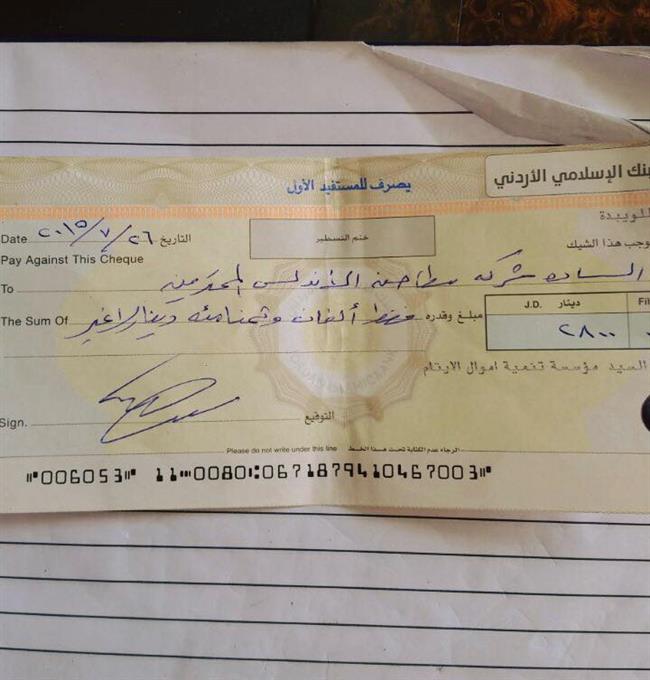 بنك الإسلامي الأردني
يصرف للمستفيد الأول
للويبدة
Date ٢٠١٥/٧/٢٦ التاريخ
ختم التسطير
وجب هذا الشيك
Pay Against This Cheque
To السادة شركة مطاحن الأندلس المحترمين
The Sum Of فقط ألفان وثمنمائة دينار لا غير مبلغ وقدره
J.D. دينار Fil
٢٨٠٠
السيد مؤسسة تنمية اموال الايتام
Sign. التوقيع
Please do not write under this line الرجاء عدم الكتابة تحت هذا الخط
⑈006053⑈ 11⑉0080⑆067187941046​7003⑈